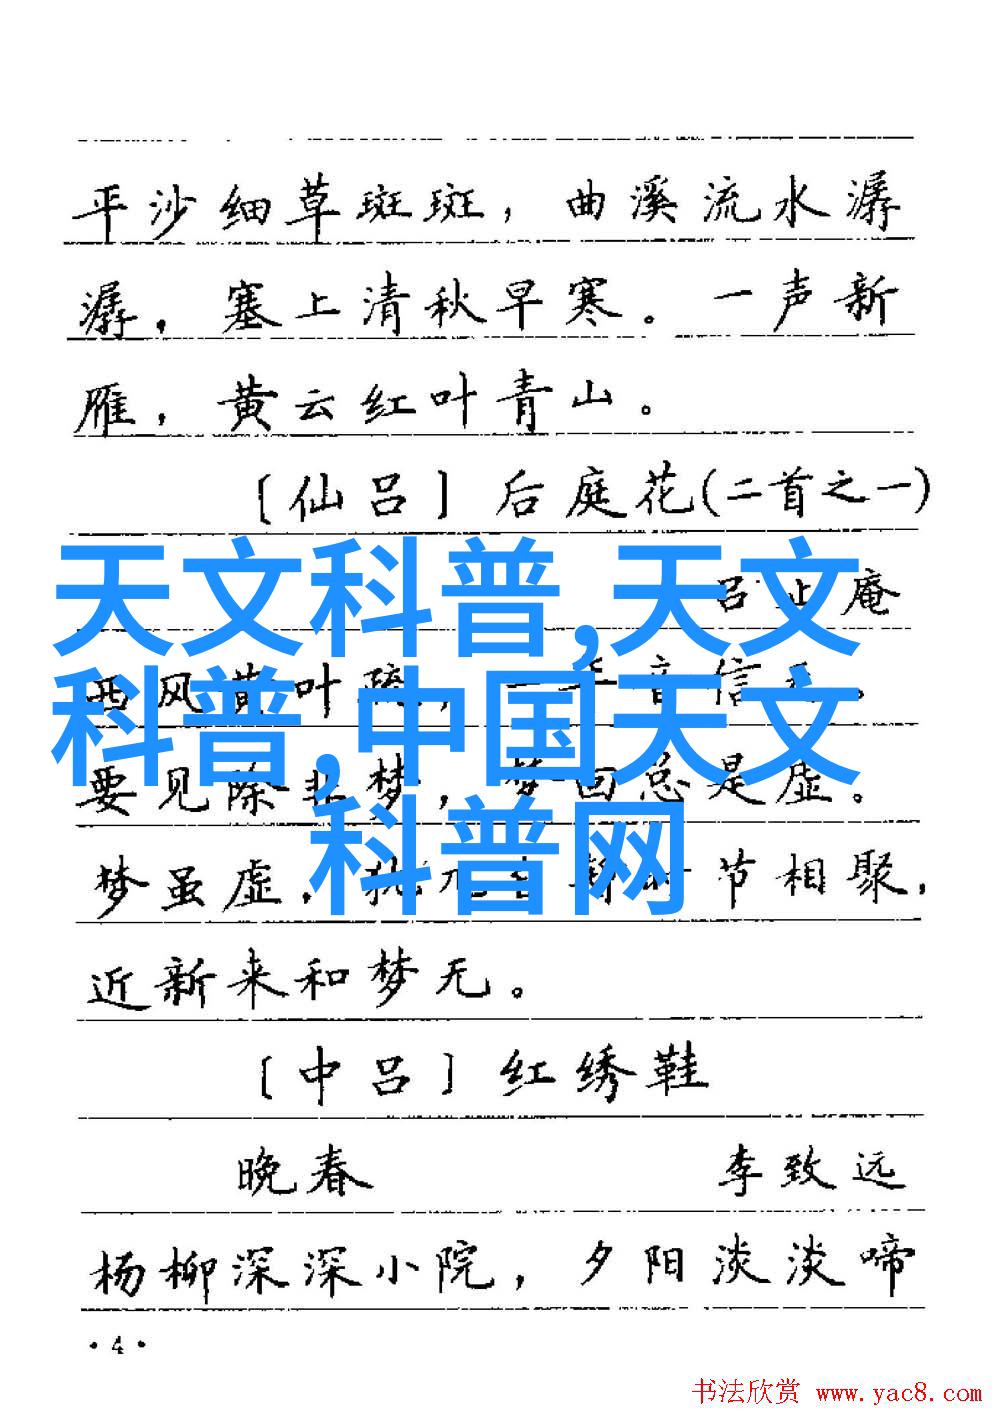 平沙细草斑斑，曲溪流水潺
潺，塞上清秋早寒。一声新
雁，黄云红叶青山。
〔仙吕〕后庭花(二首之一)
吕止庵
天文科普,天文
西风黄叶疏，一年音信无。
科普,中国天文
要见除非梦，梦回总是虚。
科普网
梦虽虚，犹兀自暂时节相聚，
近新来和梦无。
〔中吕〕红绣鞋
晚春 李致远
杨柳深深小院，夕阳淡淡啼
·4·
书法欣赏 www.yac8.com